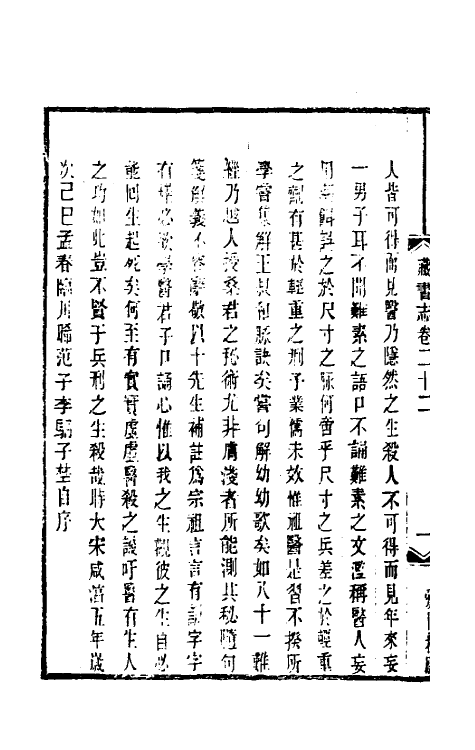 人皆可得而見醫乃隱然之生殺人不可得而見年來妄
一男子耳不聞難素之語口不誦難素之文濫稱醫人妄
用藥餌誤之於尺寸之脉何啻乎尺寸之兵差之於輕重
之有甚於輕重之刑予業儒未效惟祖醫是習不揆所
學嘗集解王叔和脉訣矣嘗句解幼幼歌矣如八十一難
經乃越人授桑君之秘術尤非膚淺者所能測其秘隨句
箋解義不容辭敬以十先生補註爲宗祖言言有訓字字
有據必欲學醫君子口誦心惟以我之生觀彼之生自必
能回生起死矣何至有實實虛虛醫殺之譏吁醫有生人
之功如此豈不賢于兵刑之生殺哉時大宋咸淳五年歲
次己巳孟春臨川晞范子李駉子埜自序
藏書志卷二十二
一